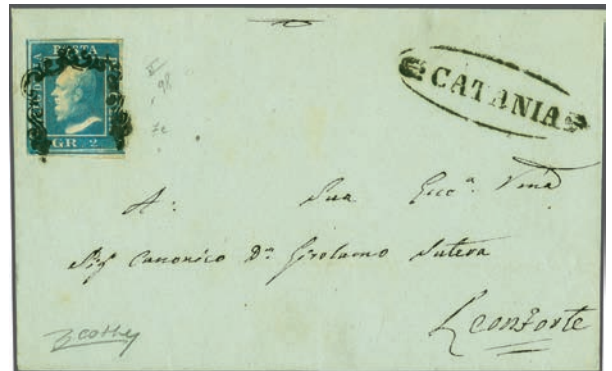 POSTA
GR. 2
CATANIA
A: Sua Ecc.ª Vma
Sig Canonico Dn Girolamo Sutera
Leonforte